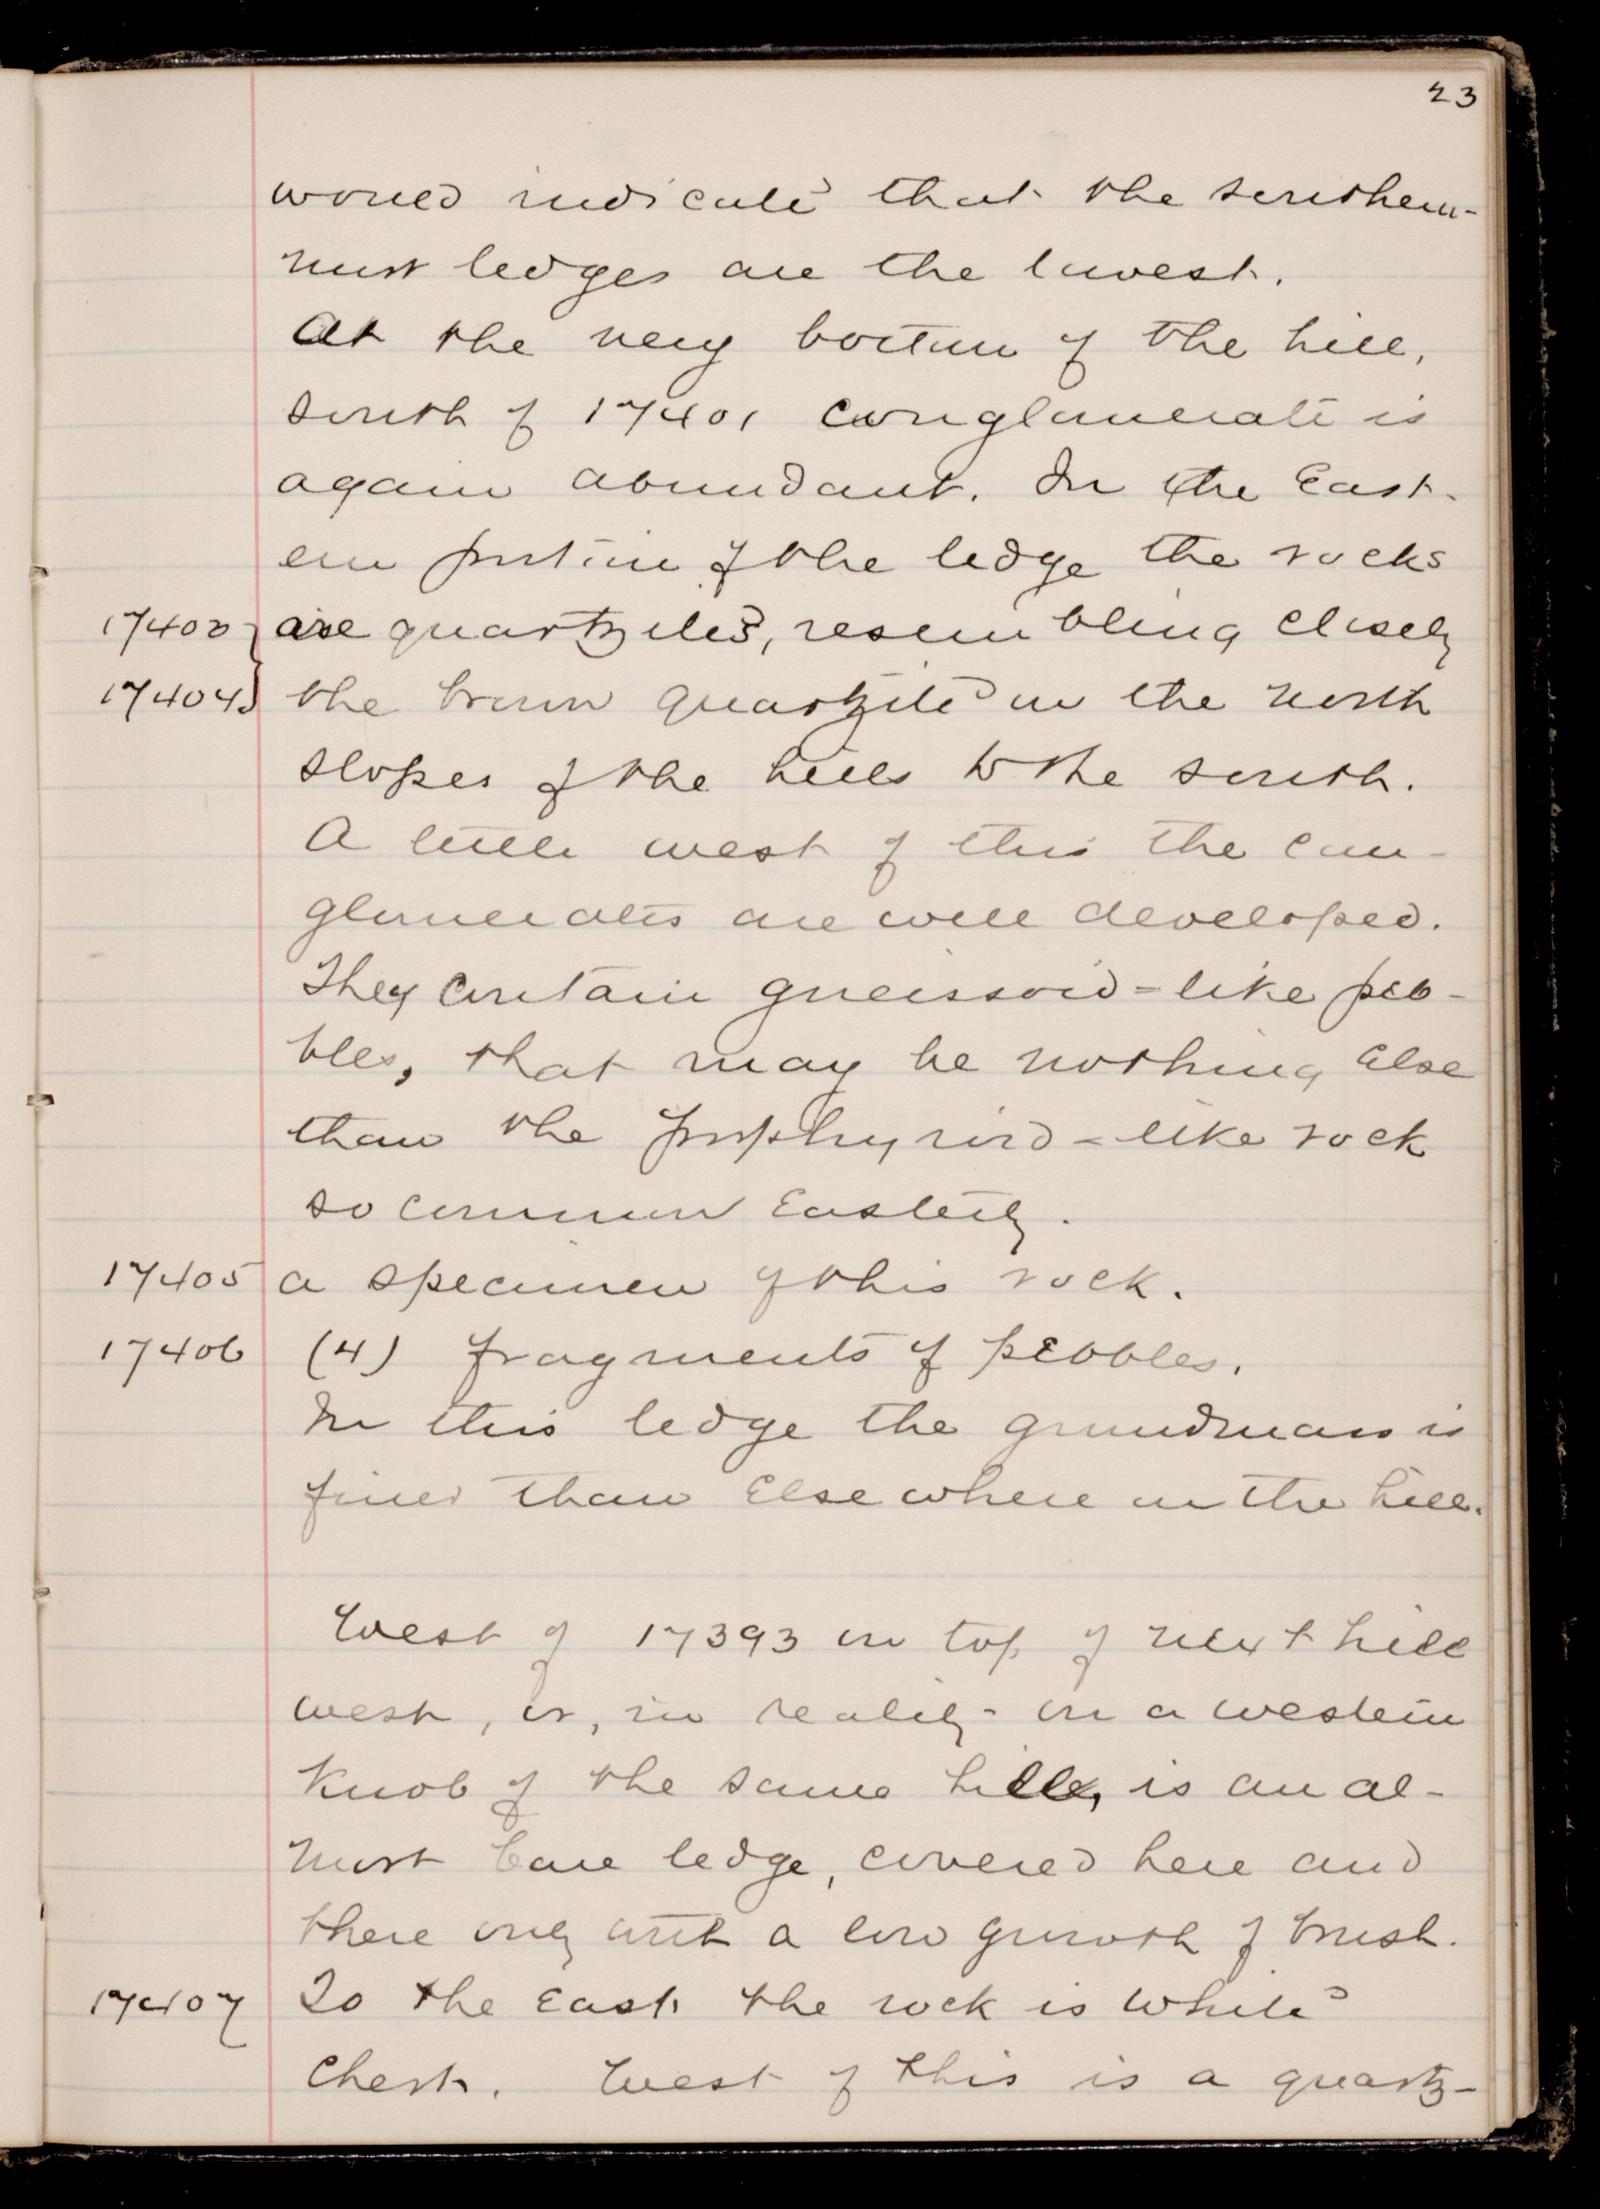 23
would indicate that the southern-
most ledges are the lowest.
At the very bottom of the hill,
south of 17401 conglomerate is
again abundant. In the East-
ern portion of the ledge the rocks
17403 } are quartzites, resembling closely
17404 } the brown quartzite on the north
slopes of the hills to the south.
A little west of this the con-
glomerates are well developed.
They contain gneissoid-like peb-
bles, that may be nothing else
than the porphyroid-like rock
so common Easterly.
17405 a specimen of this rock.
17406 (4) fragments of pebbles.
In this ledge the groundmass is
finer than Elsewhere on the hill.
West of 17393 on top of next hill
west, or, in reality - on a western
Knob of the same hill, is an al-
most bare ledge, covered here and
there only with a low growth of brush.
17407 To the East the rock is white
Chert. West of this is a quartz-